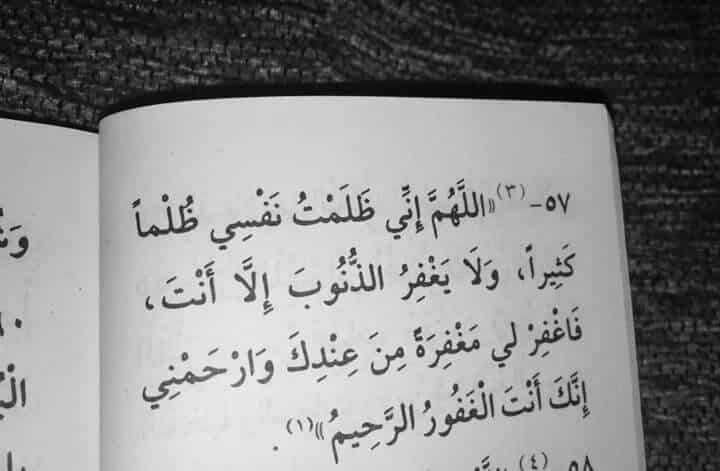 ٥٧-(٣)«اللَّهُمَّ إِنِّي ظَلَمْتُ نَفْسِي ظُلْماً
كَثِيراً، وَلَا يَغْفِرُ الذُّنُوبَ إِلَّا أَنْتَ،
فَاغْفِرْ لي مَغْفِرَةً مِنَ عِنْدِكَ وَارْحَمْنِي
إِنَّكَ أَنْتَ الْغَفُورُ الرَّحِيمُ»(١).
٥٨-(٤)